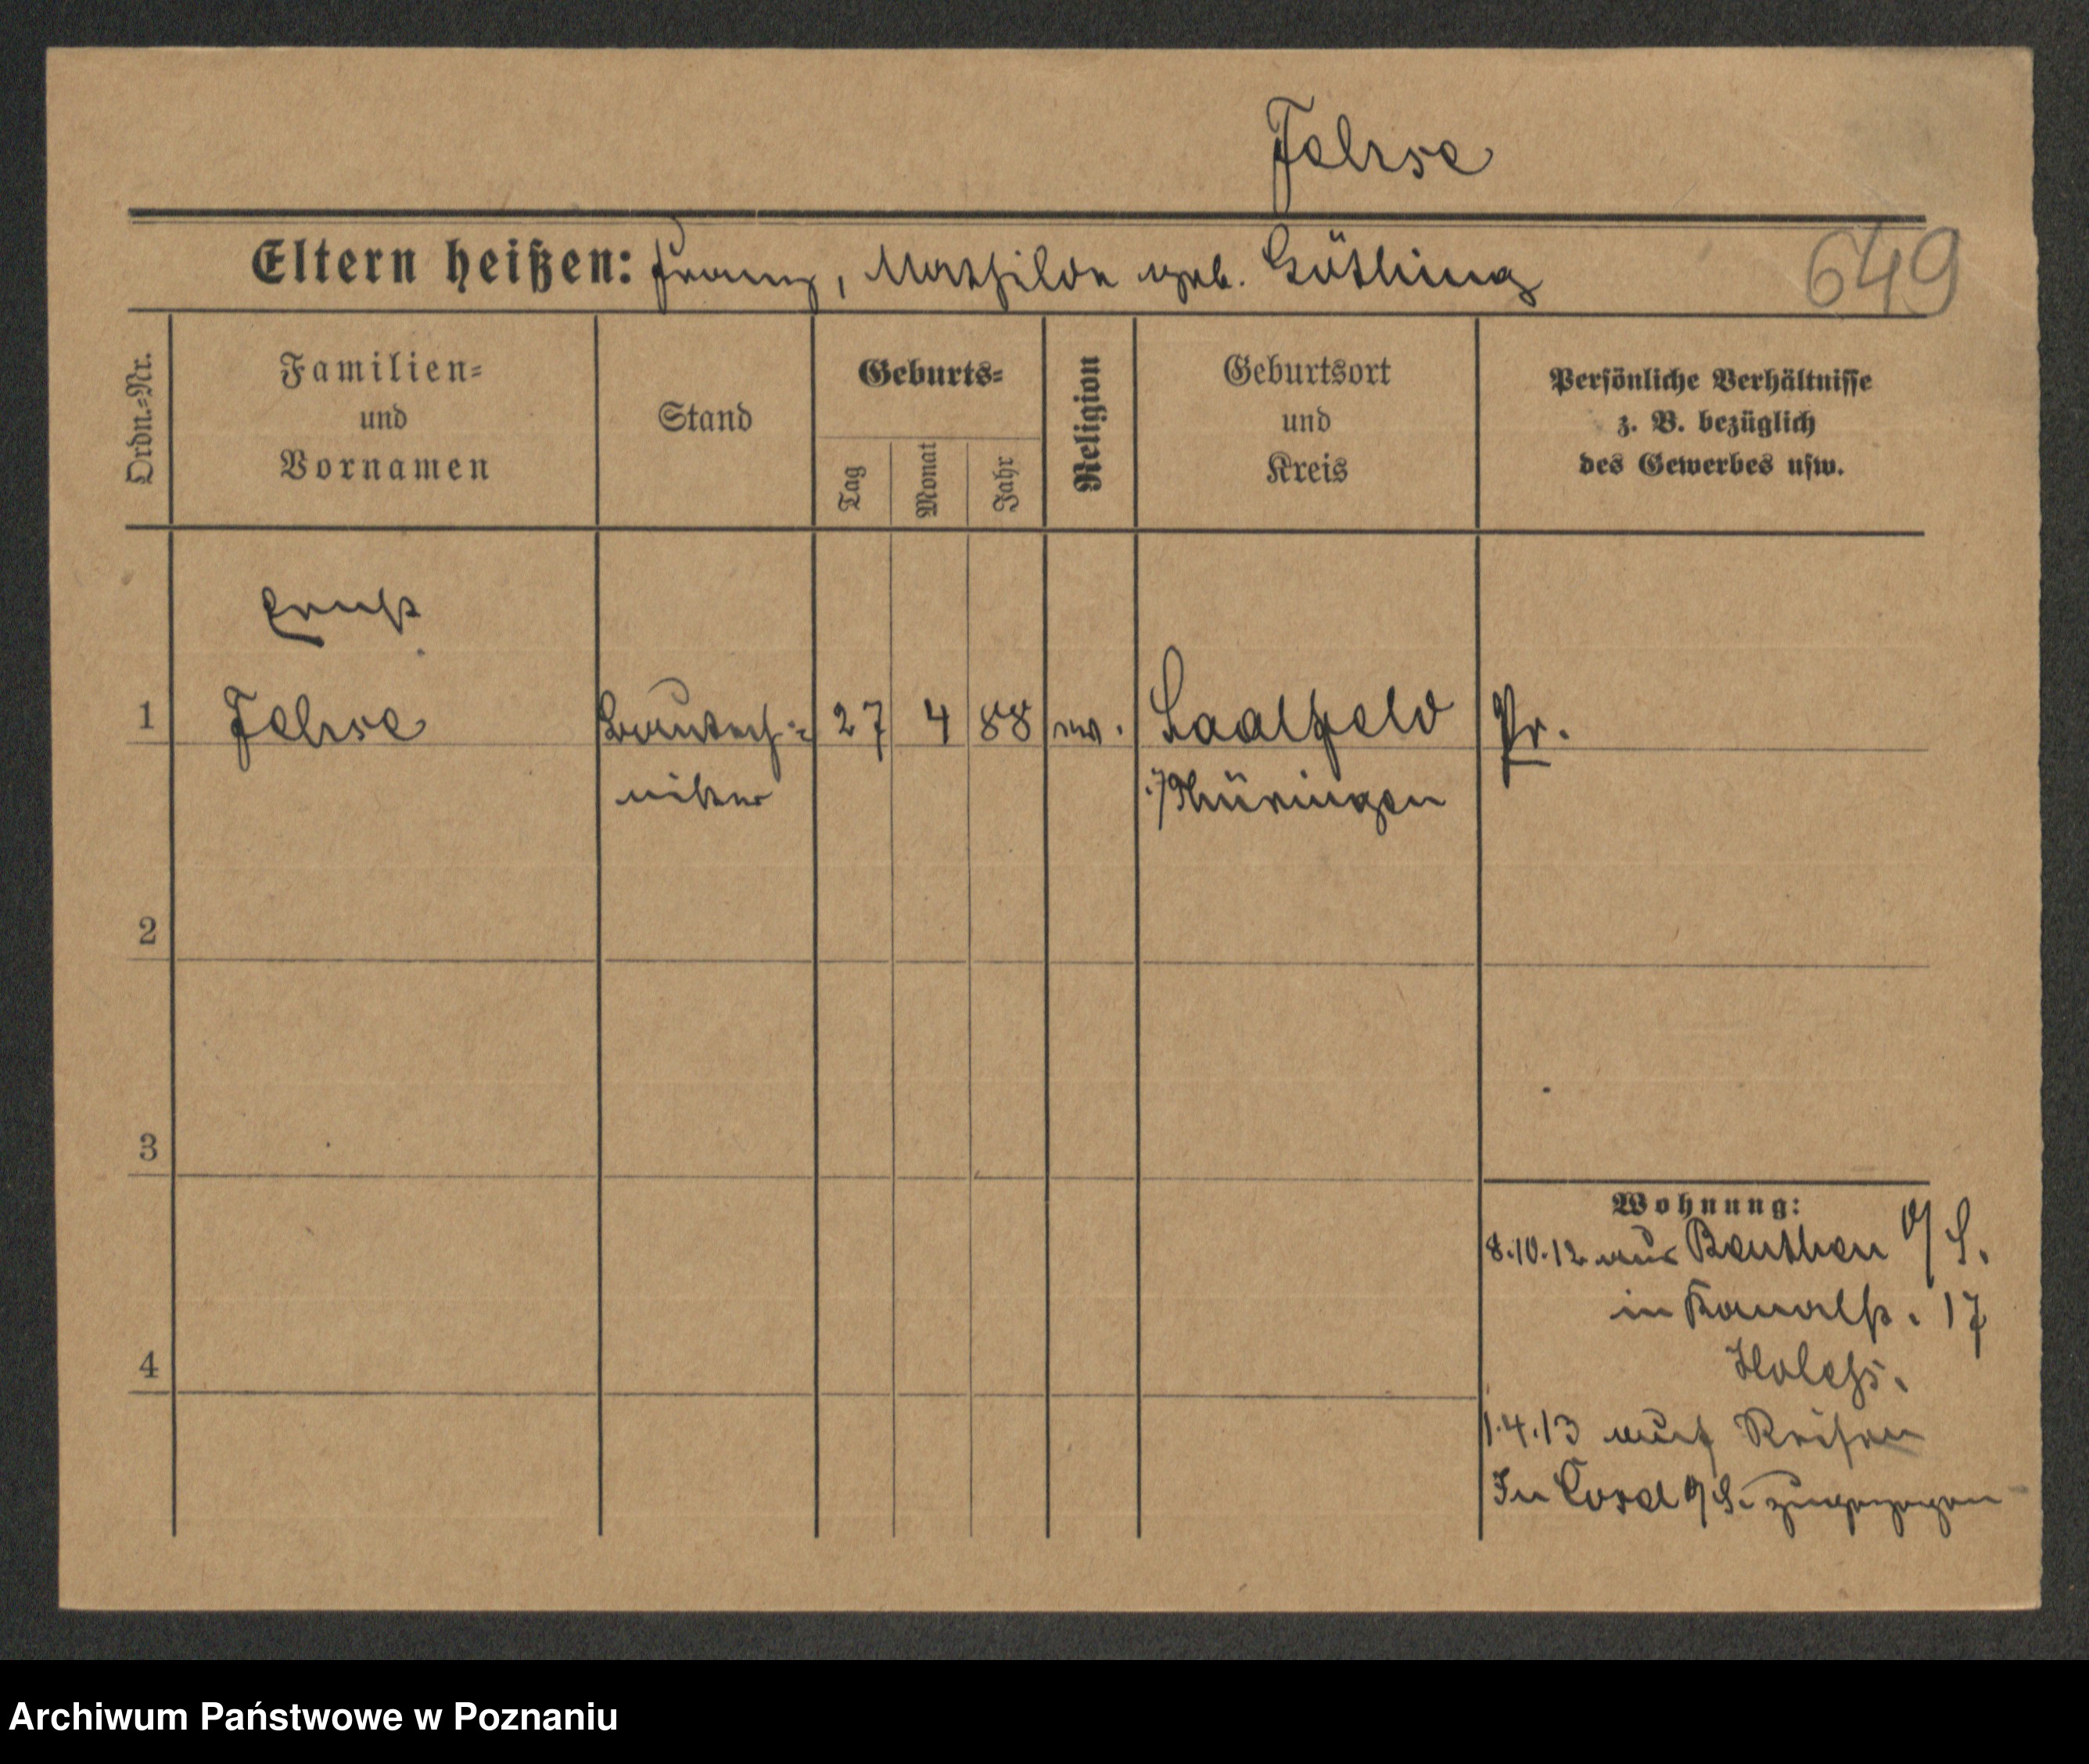 Fehse
Eltern heißen: Franz, Mathilde geb. Güthing
649
Ordn.-Nr.
Familien-
und
Vornamen
Stand
Geburts-
Tag
Monat
Jahr
Religion
Geburtsort
und
Kreis
Persönliche Verhältnisse
z. B. bezüglich
des Gewerbes usw.
Ernst
1 Fehse Bautech- 27 4 88 ev. Saalfeld Pr.
niker i/Thüringen
2
3
4
Wohnung:
8.10.12 aus Beuthen O/S.
in Kanalst. 17
1.4.13 auf Reisen
In Cosel O/S. zugezogen
Archiwum Państwowe w Poznaniu